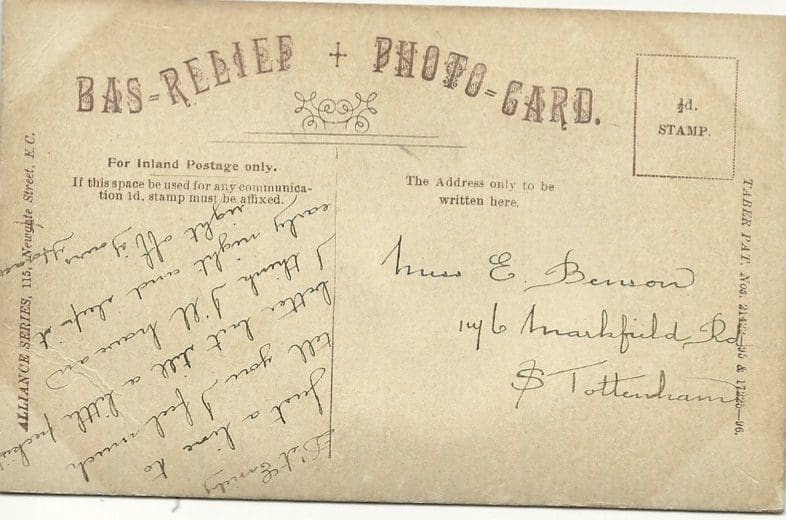 BAS=RELIEF + PHOTO=CARD.
½d.
STAMP.
For Inland Postage only.
If this space be used for any communica-
tion 1d. stamp must be affixed.
The Address only to be
written here.
ALLIANCE SERIES, 115, Newgate Street, E.C.
TABER PAT. Nos. & 17225-96.
Miss E. Benson
176 Markfield Rd
Tottenham
D't Emily
Just a line to
tell you I feel much
better but still a little
I think I'll have an
early night and sleep it
right off. Yours